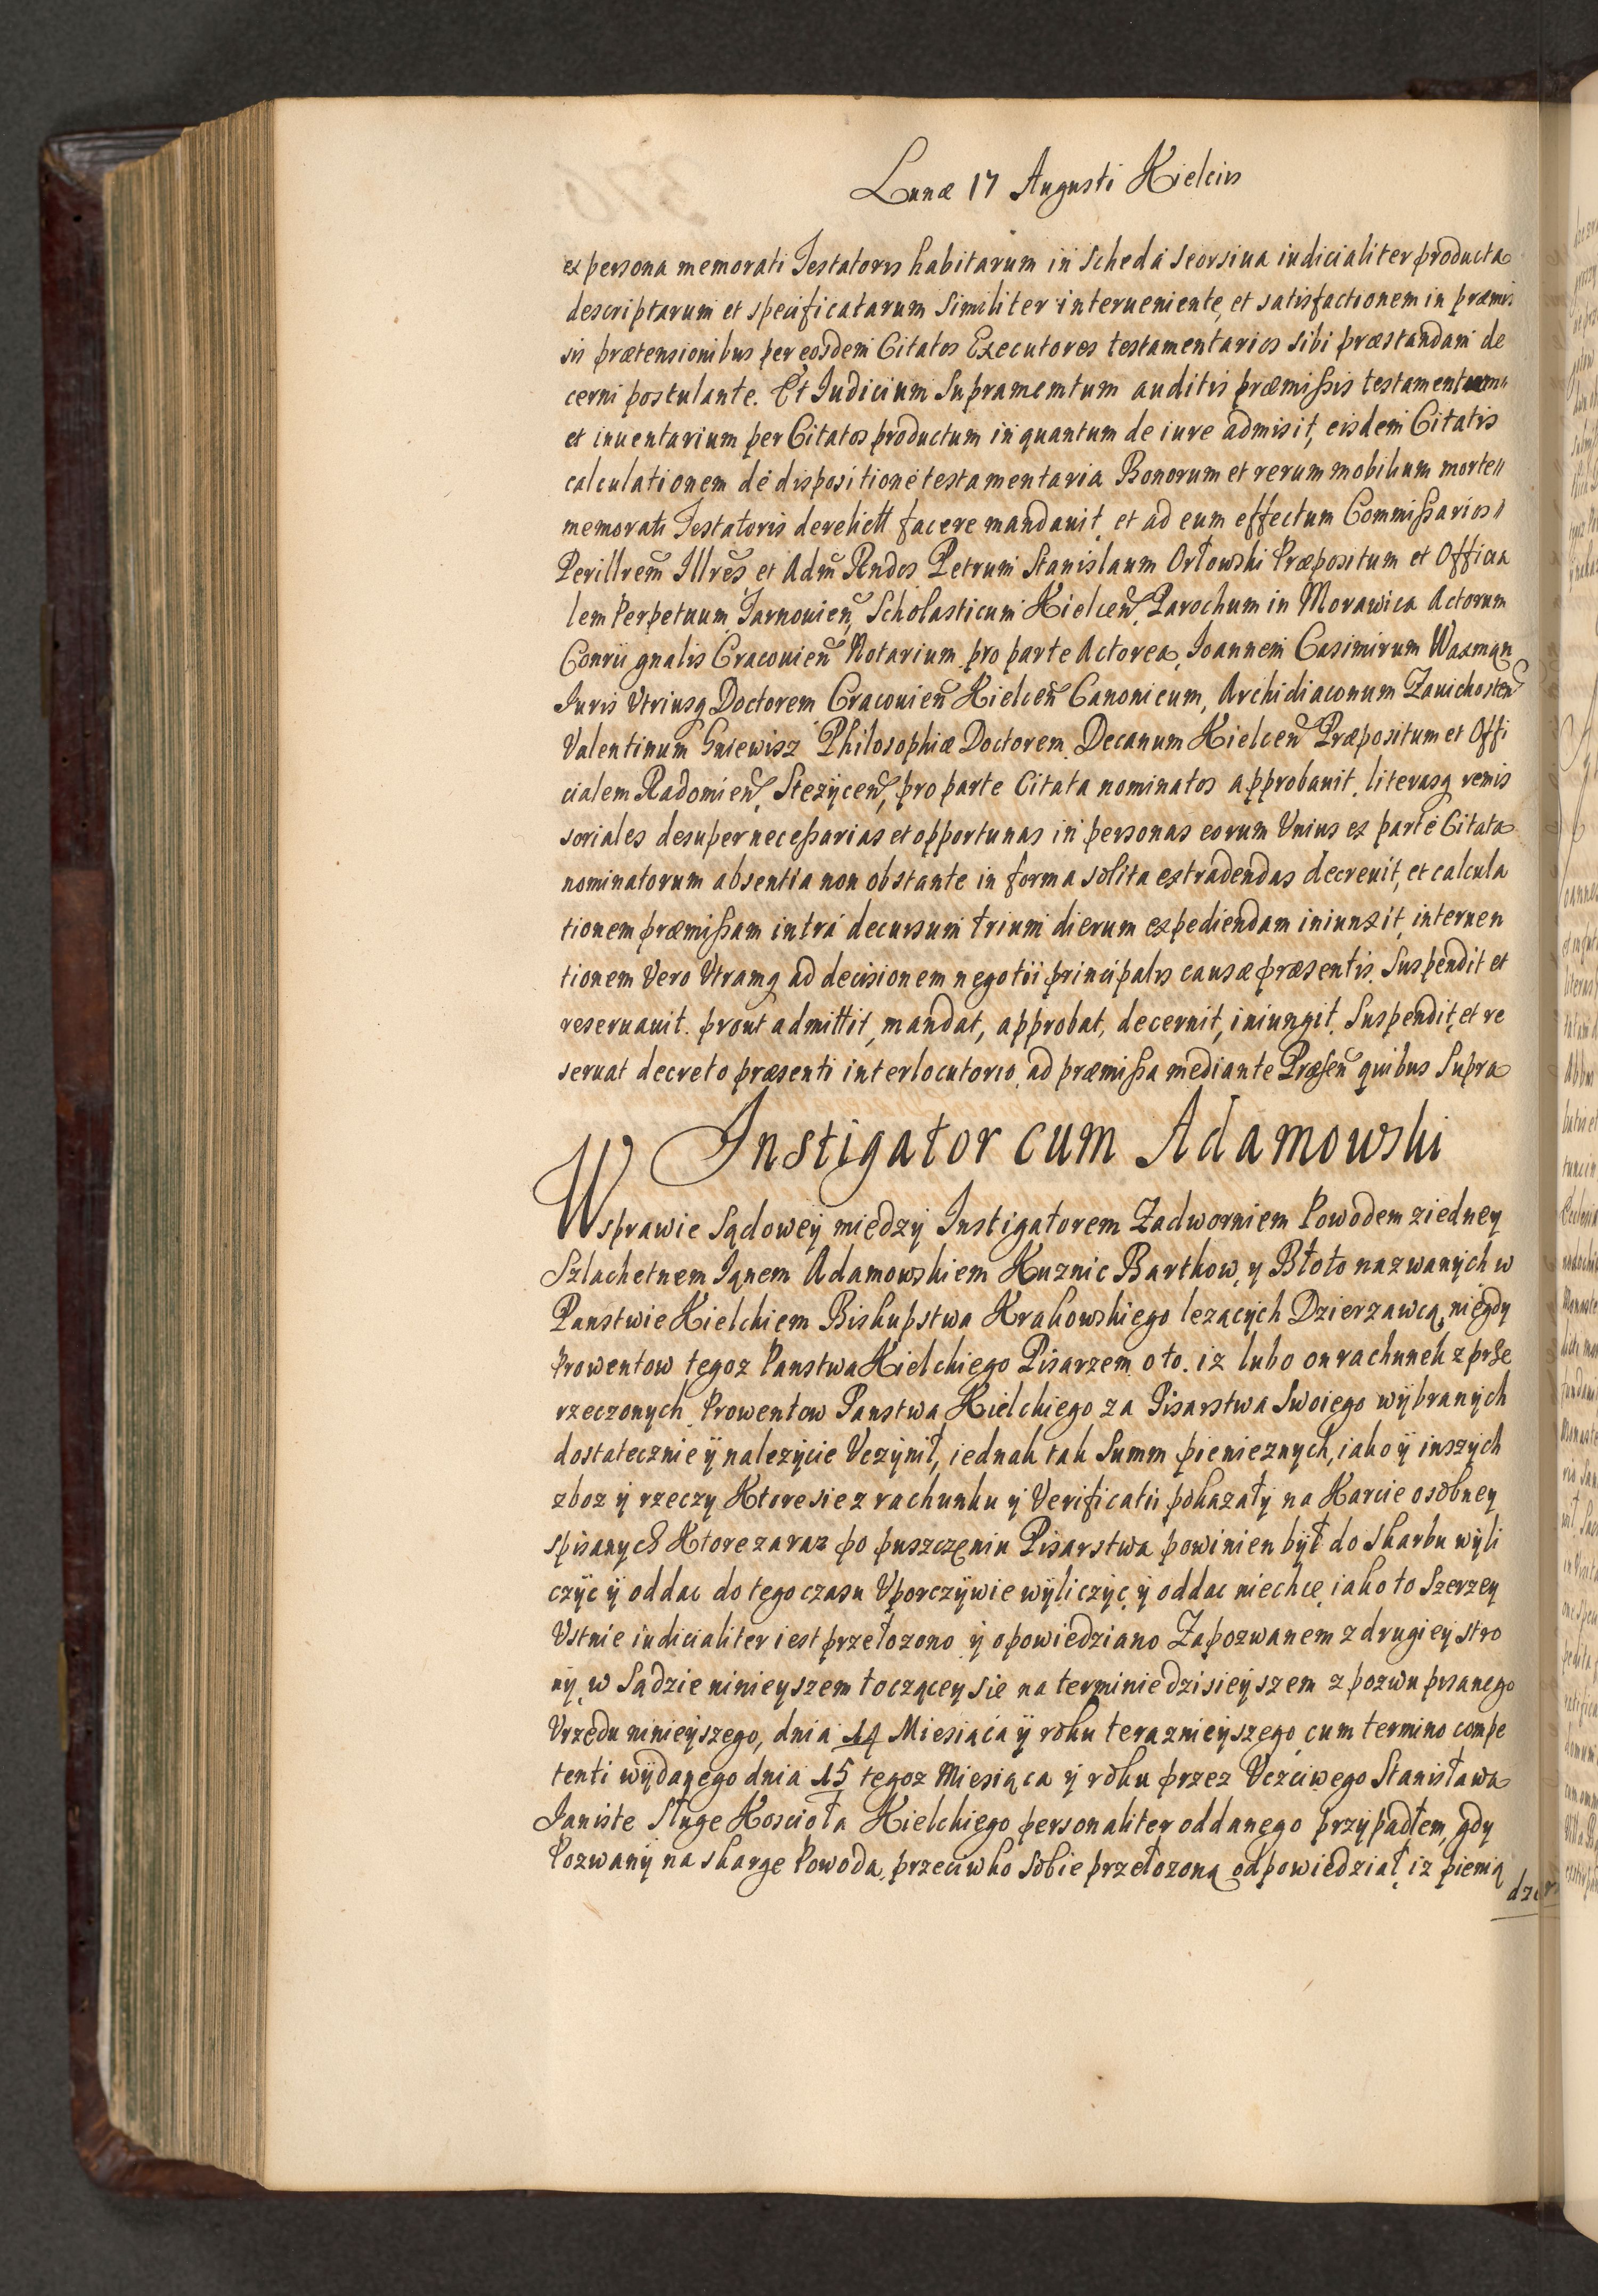 Lunæ 17 Augusti Kielciis
ex persona memorati Testatoris habitarum in scheda seorsiua iudicialiter producta
descriptarum et specificatarum similiter interueniente, et satisfactionem in præmis
sis prætensionibus per eosdem Citatos Executores testamentarios sibi præstandam de
cerni postulante. Et Iudicium supramemtum auditis præmissis testamentum
et inuentarium per Citatos productum in quantum de iure admisit, eisdem Citatis
calculationem de dispositione testamentaria Bonorum et rerum mobilium morte
memorati Testatoris derelictt facere mandauit, et ad eum effectum Commissarios
Perillrem Illres et Adm Rndos Petrum Stanislaum Orłowski Præpositum et Officia
lem Perpetuum Tarnouien, Scholasticum Kielcen, Parochum in Morawica Actorum
Conrii gnalis Cracouien Notarium pro parte Actorea, Ioannem Casimirum Waxman
Iuris Vtriusq Doctorem Cracouien Kielcen Canonicum, Archidiaconum Zauichosten
Valentinum Gniewisz Philosophiæ Doctorem Decanum Kielcen Præpositum et Offi
cialem Radomien, Stezycen, pro parte Citata nominatos approbauit, literasq remis
soriales desuper necessarias et opportunas in personas eorum Vnius ex parte Citata
nominatorum absentia non obstante in forma solita extradendas decreuit, et calcula
tionem præmissam intra decursum trium dierum expediendam iniunxit, interuen
tionem Vero Vtramq ad decisionem negotii principalis causæ præsentis suspendit et
reseruauit. prout admittit, mandat, approbat, decernit, iniungit, suspendit, et re
seruat decreto præsenti interlocutorio ad præmissa mediante Præsen quibus Supra
Instigator cum Adamowski
W sprawie Sądowey miedzy Instigatorem Zadworniem Powodem ziedney
Szlachetnem Ianem Adamowskiem Kuznic Bartkow, y Błoto nazwanych w
Panstwie Kielckiem Biskupstwa Krakowskiego lezących Dzierzawcą, niegdy
Prowentow tegoz Panstwa Kielckiego Pisarzem o to. iz lubo on rachunek z prze
rzeczonych Prowentow Panstwa Kielckiego za Pisarstwa Swoiego wybranych
dostatecznie y nalezycie Vczynił, iednak tak Summ pienieznych, iako y inszych
zboz y rzeczy Ktore sie z rachunku y Verificatii pokazały na Karcie osobney
spisanych Ktore zaraz po puszczeniu Pisarstwa powinien był do skarbu wyli
czyc y oddac do tego czasu Vporczywie wyliczyc y oddac niechce, iako to Szerzey
Vstnie iudicialiter iest przełozono y opowiedziano Zapozwanem z drugiey stro
ny, w Sądzie ninieyszem toczącey sie na terminie dzisieyszem z pozwu pisanego
Vrzedu ninieyszego, dnia 14 Miesiąca y roku terazniejszego cum termino compe
tenti wydanego dnia 15 tegoz Miesiąca y roku przez Vczciwego Stanisława
Ianiste Sługe Koscioła Kielckiego personaliter oddanego przypadłem, gdy
Pozwany na skarge Powoda, przeciwko sobie przełozoną odpowiedział, iz pienią